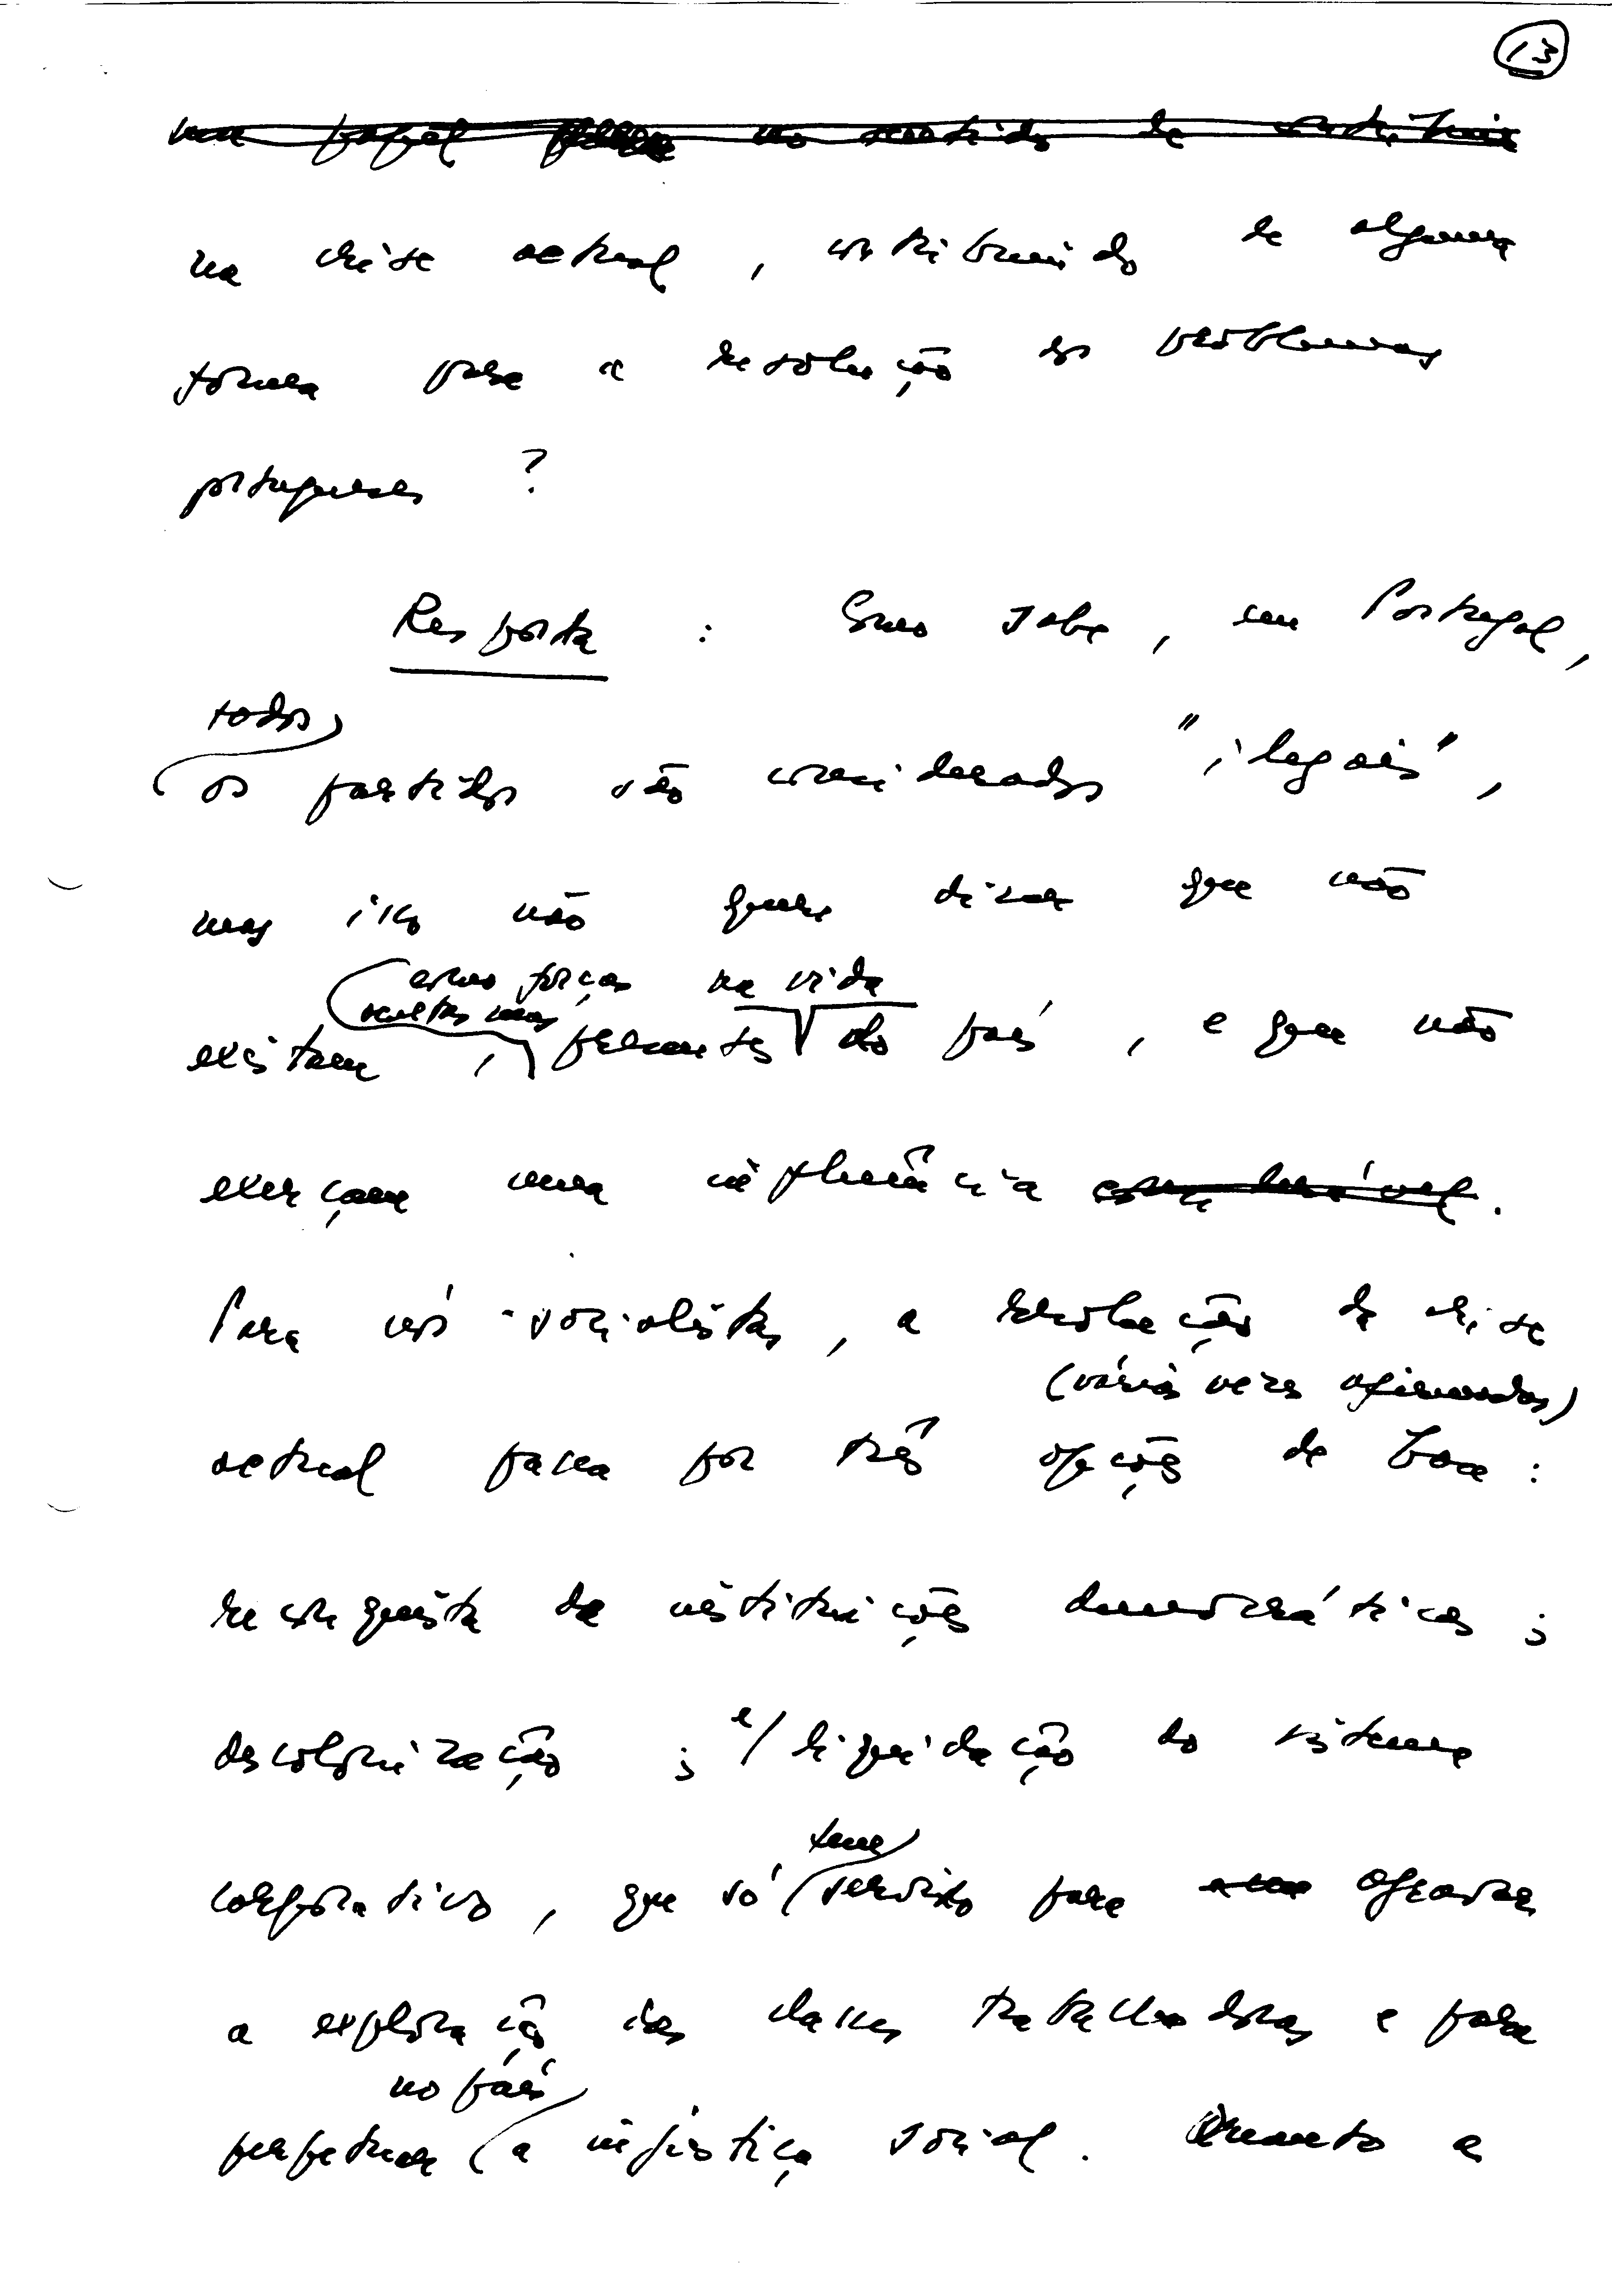 13
um papel no sentido de
na crise actual, contribuindo de alguma
forma para a resolução dos problemas
portugueses ?
Resposta : Como sabe, em Portugal,
todos
os partidos são considerados "ilegais",
mas isso não quere dizer que não
como forças na vida
ocultas mas
existam, presentes do país, e que não
exerçam uma influência considerável.
Para nós - socialistas, a resolução da crise
(várias vezes afirmadas)
actual passa por três opções de base :
reconquista das instituições democráticas ;
descolonização ; e/ liquidação do sistema
tem
corporativo, que só servido para agravar
a exploração das classes trabalhadoras e para
no país
perpetuar a injustiça social. Quanto a